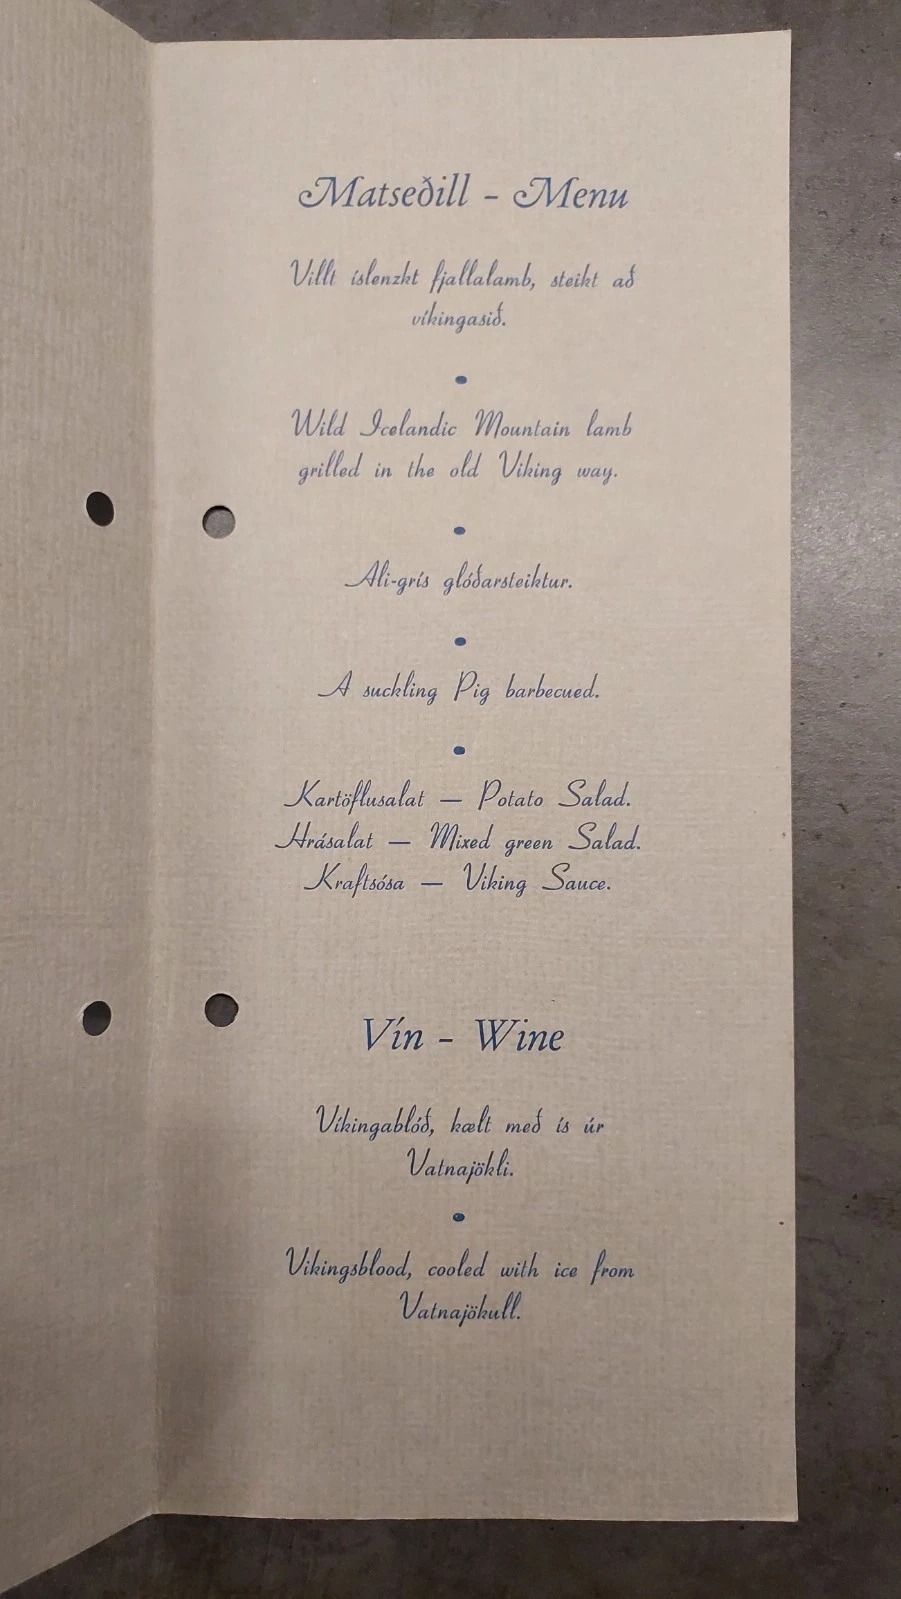 Matseðill - Menu
Villt íslenzkt fjallalamb, steikt að
víkingasið.
Wild Icelandic Mountain lamb
grilled in the old Viking way.
Ali-grís glóðarsteiktur.
A suckling Pig barbecued.
Kartöflusalat — Potato Salad.
Hrásalat — Mixed green Salad.
Kraftsósa — Viking Sauce.
Vín - Wine
Víkingablóð, kælt með ís úr
Vatnajökli.
Vikingsblood, cooled with ice from
Vatnajökull.